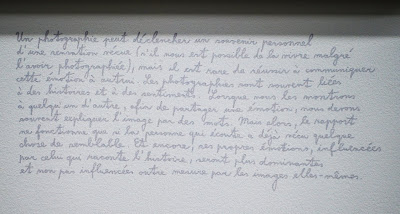 Un photographie peut déclencher un souvenir personnel
d'une sensation vécue (s'il nous est possible de la vivre malgré
l'avoir photographiée), mais il est rare de réussir à communiquer
cette émotion à autrui. Les photographies sont souvent liées
à des histoires et à des sentiments. Lorsque nous les montrons
à quelqu'un d'autre, afin de partager une émotion, nous devons
souvent expliquer l'image par des mots. Mais alors, le rapport
ne fonctionne que si la personne qui écoute a déjà vécu quelque
chose de semblable. Et encore, ses propres émotions, influencées
par celui qui raconte l'histoire, seront plus dominantes
et non pas influencées outre mesure par les images elles-mêmes.